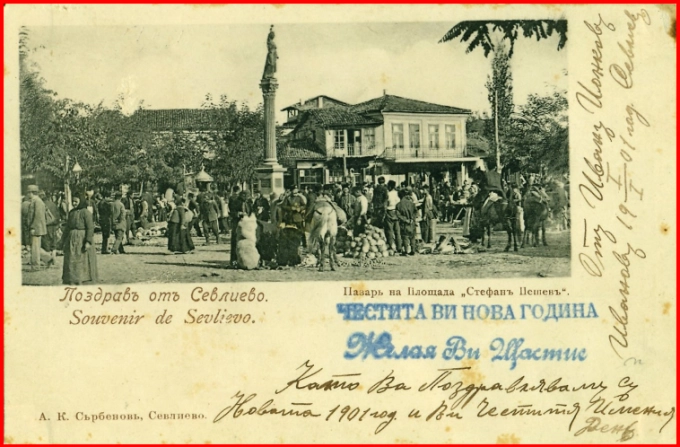 Поздравъ отъ Севлиево.
Souvenir de Sevlievo.
Пазарь на Площада „Стефанъ Пешевъ“.
ЧЕСТИТА ВИ НОВА ГОДИНА
Желая Ви Щастие
Като Ва Поздравлявамъ съ
Новата 1901 год. и Ви Честитя Имения
День
А. К. Сърбеновъ, Севлиево.
Отъ Иванъ Ионковъ
Иванову 19 1/I 01 год. Севлиев